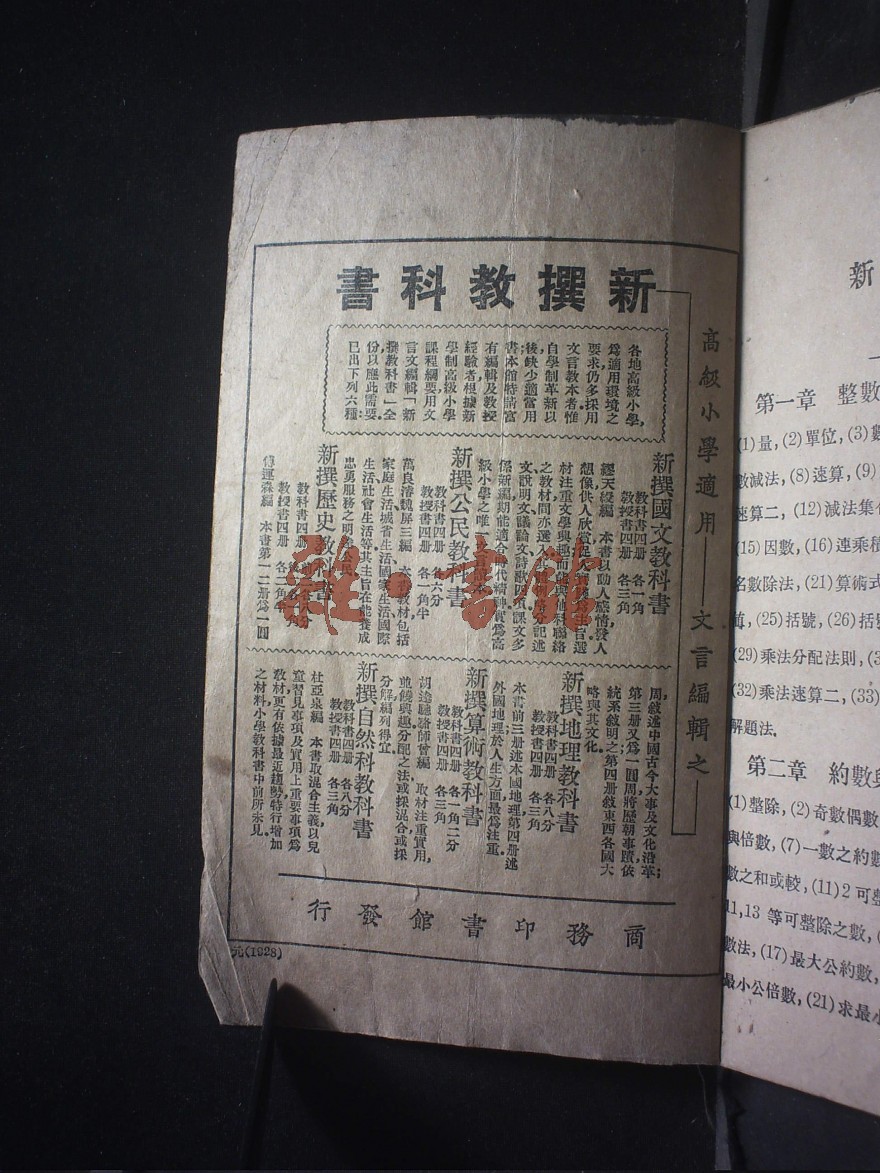 新撰教科書
高級小學適用——文言編輯之——
各地高級小學,
爲適用環境之
要求,仍多採用
文言教本者,惟
自學制革新以
後,缺少適當用
書,本館特請富
有編輯及教授
經驗者,根據新
學制高級小學
課程綱要,用文
言文編輯「新
撰教科書」全
份,以應此需要.
已出下列六種:
新撰國文教科書
教科書四册 各一角
教授書四册 各三角
繆天綬編 本書以動人感情,發人
想像,供人欣賞,
材注重文學興趣,而
之教材間亦選入
文說明文議論文詩歌四項,課文多
係新編,期能適合時代精神,實爲高
級小學之唯一文言讀本.
新撰公民教科書
教科書四册 各六分
教授書四册 各一角半
萬良濬魏屏三編 本書教材包括
家庭生活,城省生活,國家生活,國際
生活,社會生活等,其主旨在能養成
忠勇服務之明達公民.
新撰歷史教科書
教科書四册
教授書四册 各二角半
傅運森編 本書第一二册爲一圓
周,敘述中國古今大事及文化沿革;
第三册又爲一圓周,將歷朝事蹟,依
統系敘明之;第四册敘東西各國大
略與其文化.
新撰地理教科書
教科書四册 各八分
教授書四册 各三角
本書前三册述本國地理,第四册述
外國地理,於人生方面最爲注重.
新撰算術教科書
教科書四册 各一角二分
教授書四册 各三角
胡達聰駱師曾編 取材注重實用,
並饒興趣,分配之法,或採混合,或採
分解,編列得宜.
新撰自然科教科書
教科書四册 各八分
教授書四册 各三角
杜亞泉編 本書取混合主義,以兒
童習見事項及實用上重要事項爲
教材,更有依據最近趨勢特行增加
之材料,小學教科書中前所未見.
商務印書館發行
元(1928)
雜·書館
新
第一章 整數
(1)量, (2)單位, (3)
數減法, (8)速算, (9)
速算二, (12)減法
(15)因數, (16)速乘
名數除法, (21)算術式
(25)括號, (26)括
(29)乘法分配法則,
(32)乘法速算二, (33)
解題法.
第二章 約數與
(1)整除, (2)奇數偶數
與倍數, (7)一數之約數
數之和或較, (11)2 可整
11,13 等可整除之數,
數法, (17)最大公約數,
最小公倍數, (21)求最小